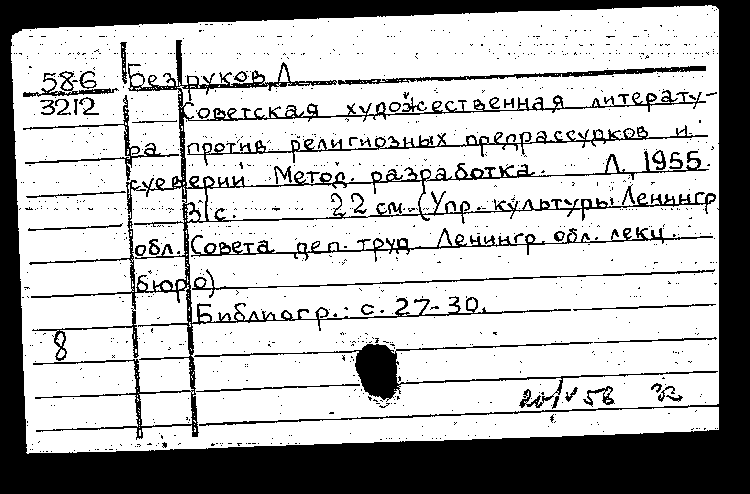 58-6 Безруков, Л
3212 Советская художественная литерату-
ра против религиозных предрассудков и
суеверий Метод. разработка. Л., 1955.
31с. - 22 см. (Упр. культуры Ленингр
обл. Совета деп. труд Ленингр. обл. лекц.
бюро)
Библиогр.: с. 27-30.
8
20/V 58